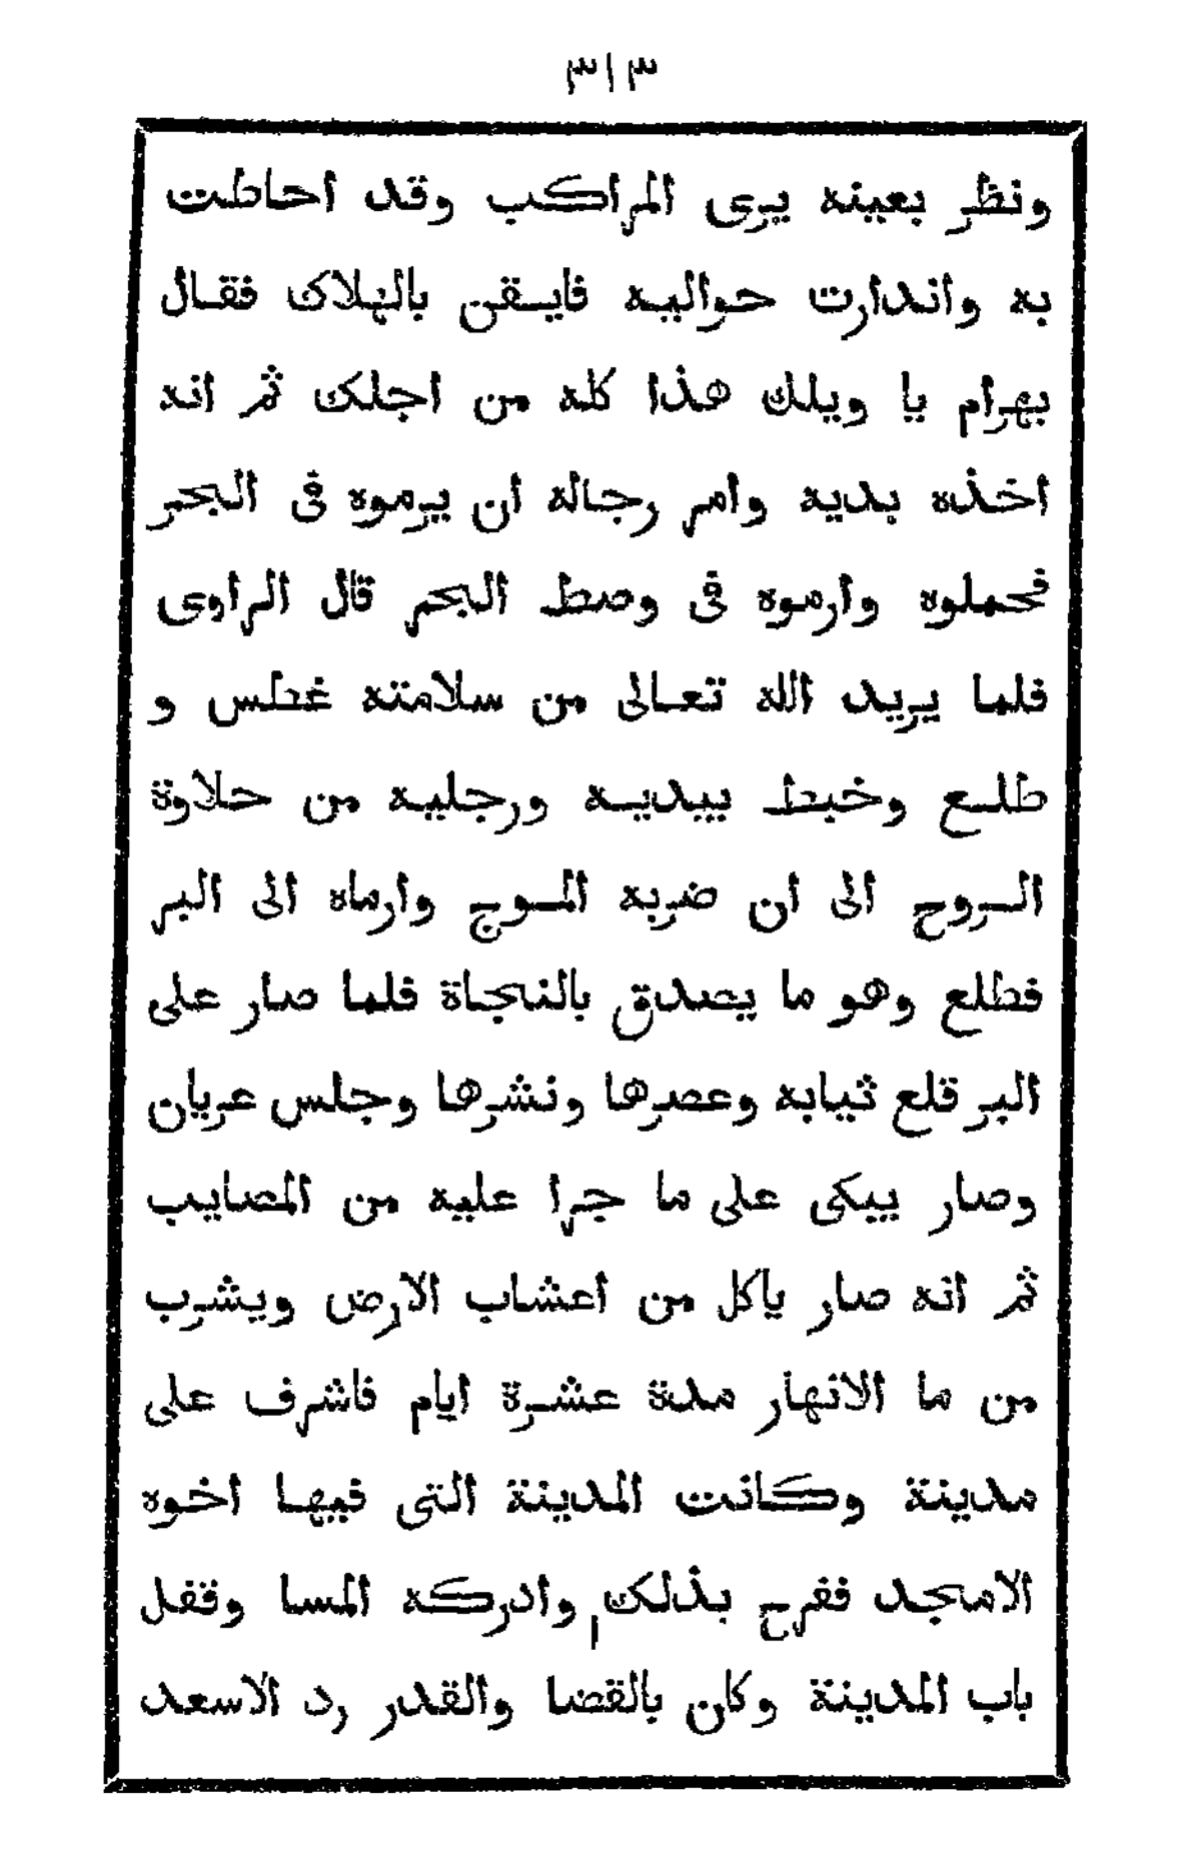 ٣١٣
ونظر بعينه يرى المراكب وقد احاطت
به واندارت حواليه فايسقن بالهلاك فقال
بهرام يا ويلك هذا كله من اجلك ثم انه
اخذه بديه وامر رجاله ان يرموه فى البحر
فحملوه وارموه فى وصط البحر قال الراوى
فلما يريد الله تعالى من سلامته غطس و
طلع وخبط بيديه ورجليه من حلاوة
الروح الى ان ضربه الموج وارماه الى البر
فطلع وهو ما يصدق بالنجاة فلما صار على
البر قلع ثيابه وعصرها ونشرها وجلس عريان
وصار يبكى على ما جرا عليه من المصايب
ثم انه صار ياكل من اعشاب الارض ويشرب
من ما الانهار مدة عشرة ايام فاشرف على
مدينة وكانت المدينة التى فيها اخوه
الامجد ففرح بذلك وادركه المسا وقفل
باب المدينة وكان بالقضا والقدر رد الاسعد